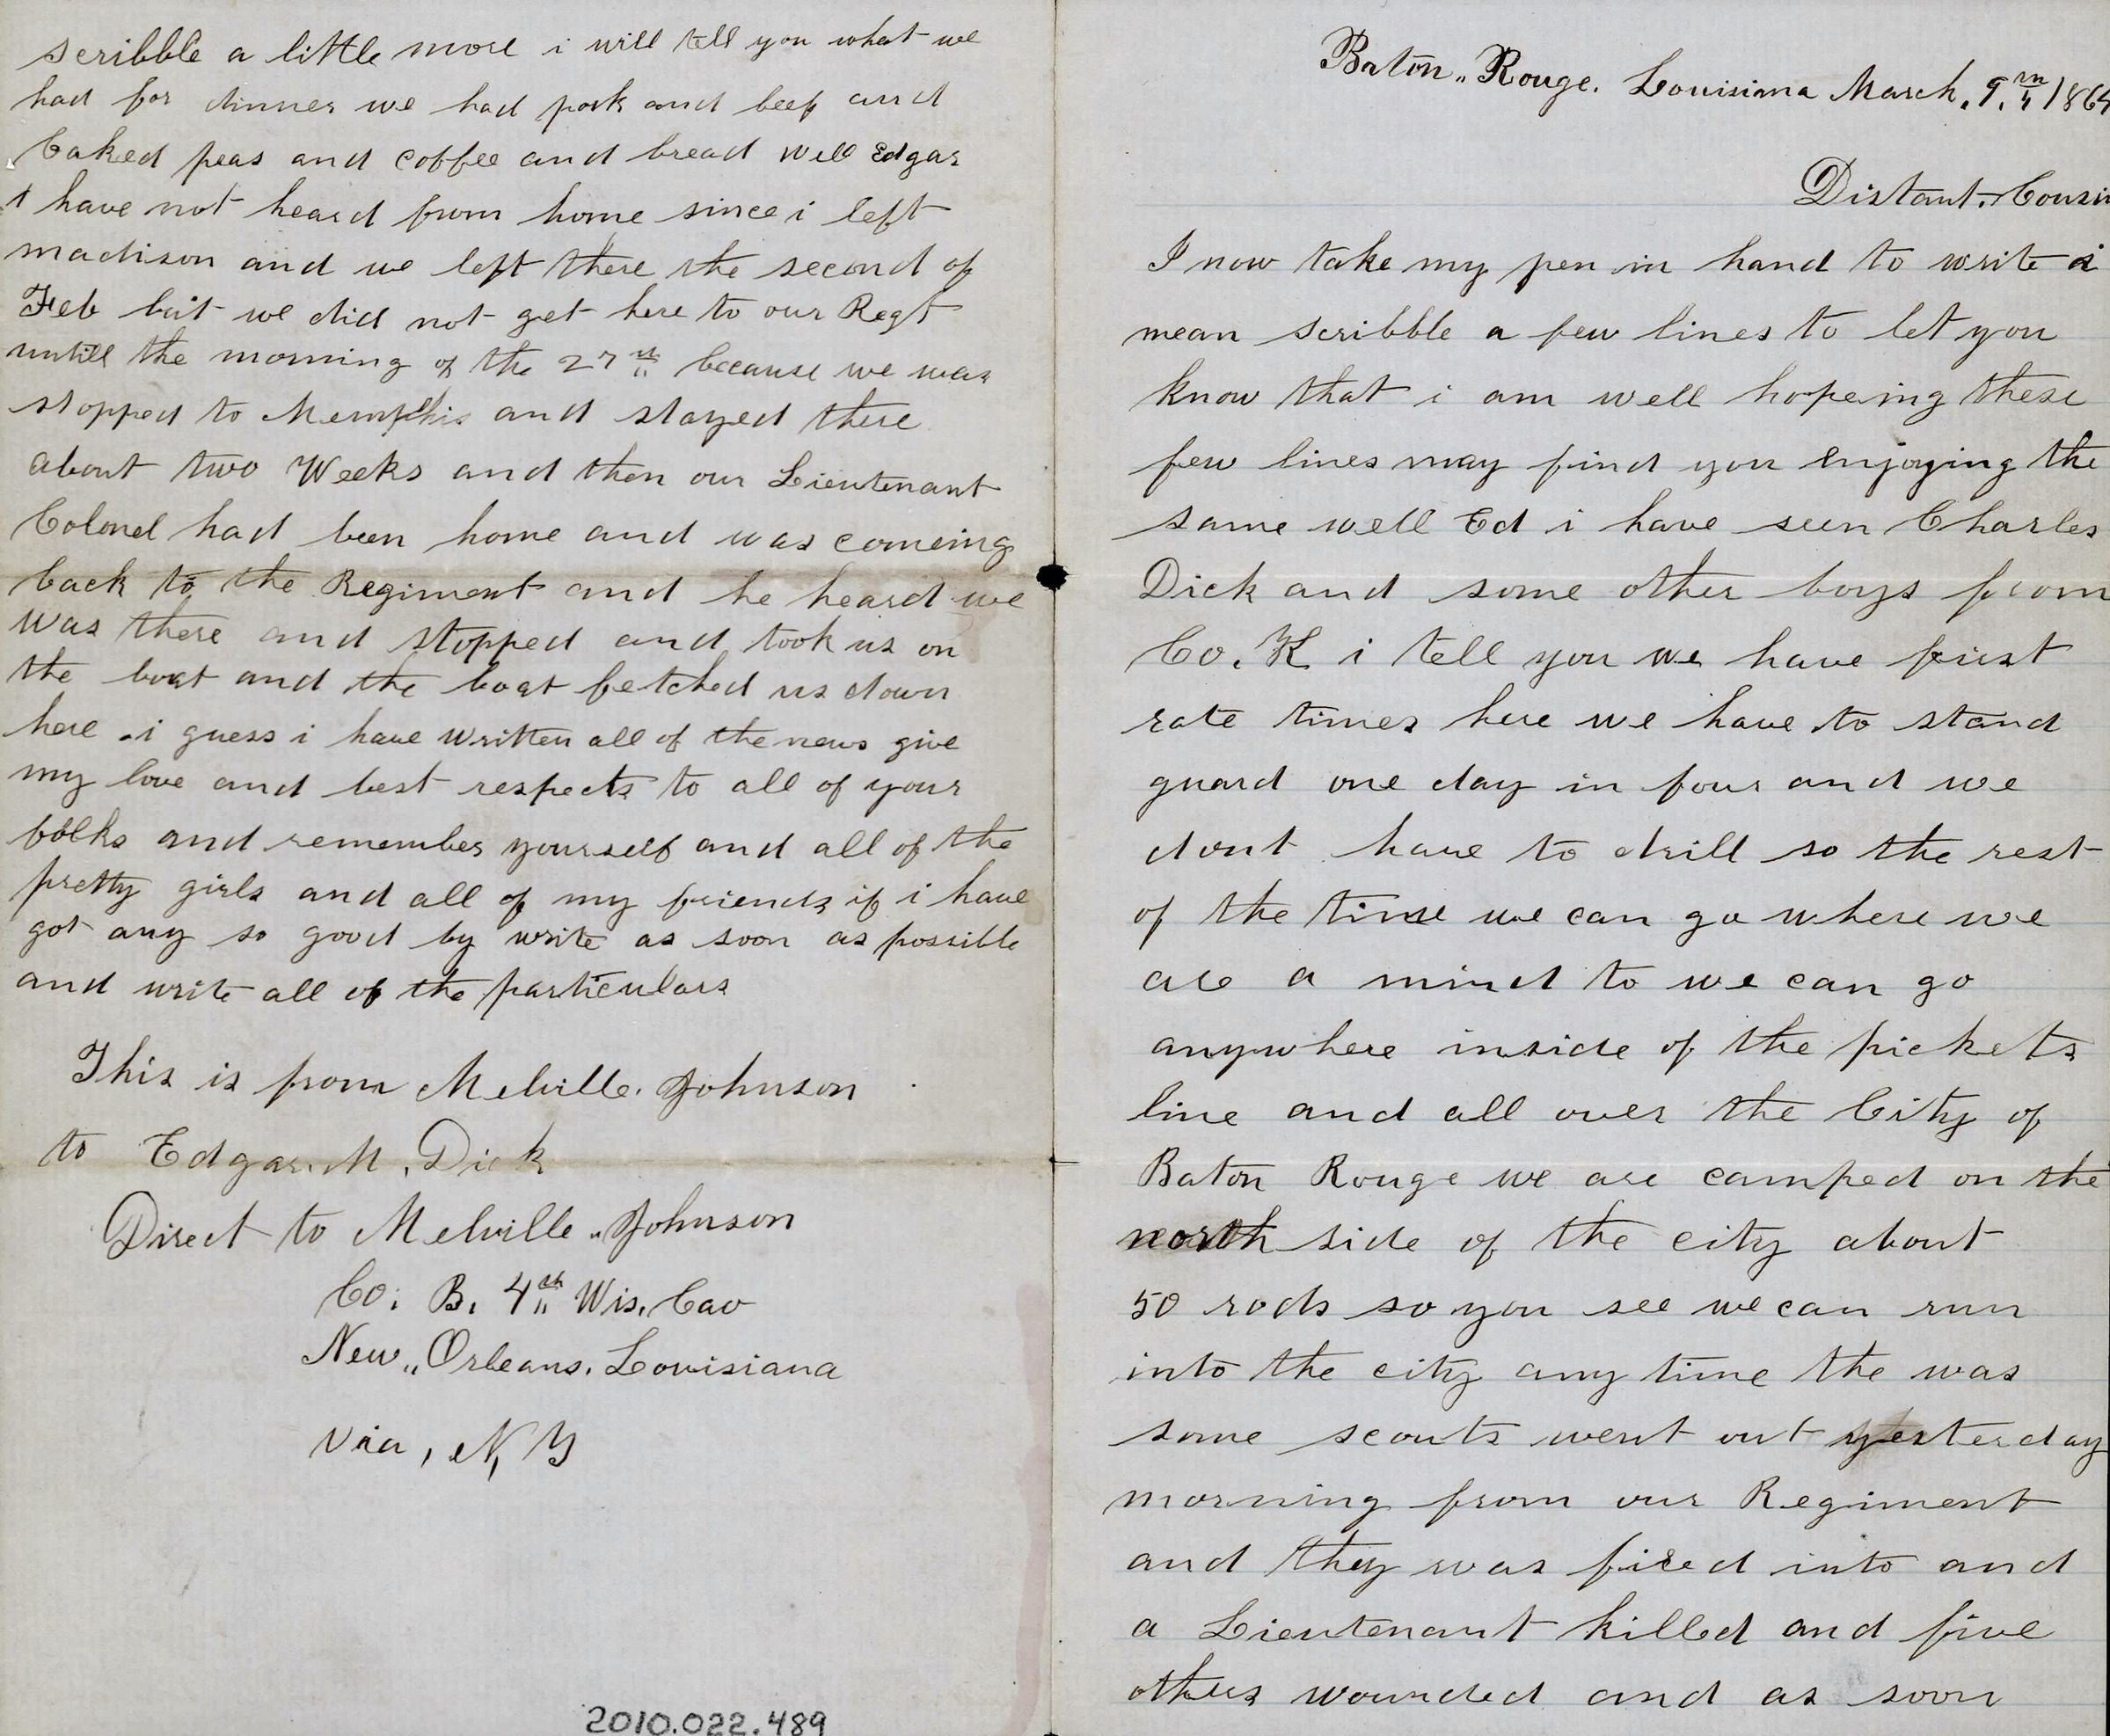 Baton,, Rouge. Louisiana March. 9.th 1864
Distant. Cousin
I now take my pen in hand to write i
mean scribble a few lines to let you
know that i am well hopeing these
few lines may find you enjoying the
same well Ed i have seen Charles
Dick and some other boys from
Co. K i tell you we have first
rate times here we have to stand
guard one day in four and we
dont have to drill so the rest
of the time we can go where we
are a mind to we can go
anywhere inside of the pickets
line and all over the City of
Baton Rouge we are camped on the
north side of the city about
50 rods so you see we can run
into the city any time the was
some scouts went out yesterday
morning from our Regiment
and they was fired into and
a Lieutenant killed and five
others wounded and as soon
scribble a little more i will tell you what we
had for dinner we had pork and beef and
baked peas and coffee and bread well Edgar
I have not heard from home since i left
madison and we left there the second of
Feb but we did not get here to our Regt
untill the morning of the 27th because we was
stopped to Memphis and stayed there
about two Weeks and then our Lieutenant
Colonel had been home and was comeing
back to the Regiment and he heard we
was there and stopped and took us on
the boat and the boat fetched us down
here . i guess i have written all of the news give
my love and best respects to all of your
folks and remember yourself and all of the
pretty girls and all of my friends if i have
got any so good by write as soon as possible
and write all of the particulars
This is from Melville. Johnson
to Edgar. M. Dick
Direct to Melville. Johnson
Co. B. 4th Wis. Cav
New,, Orleans. Louisiana
Via, N, Y
2010.022.489